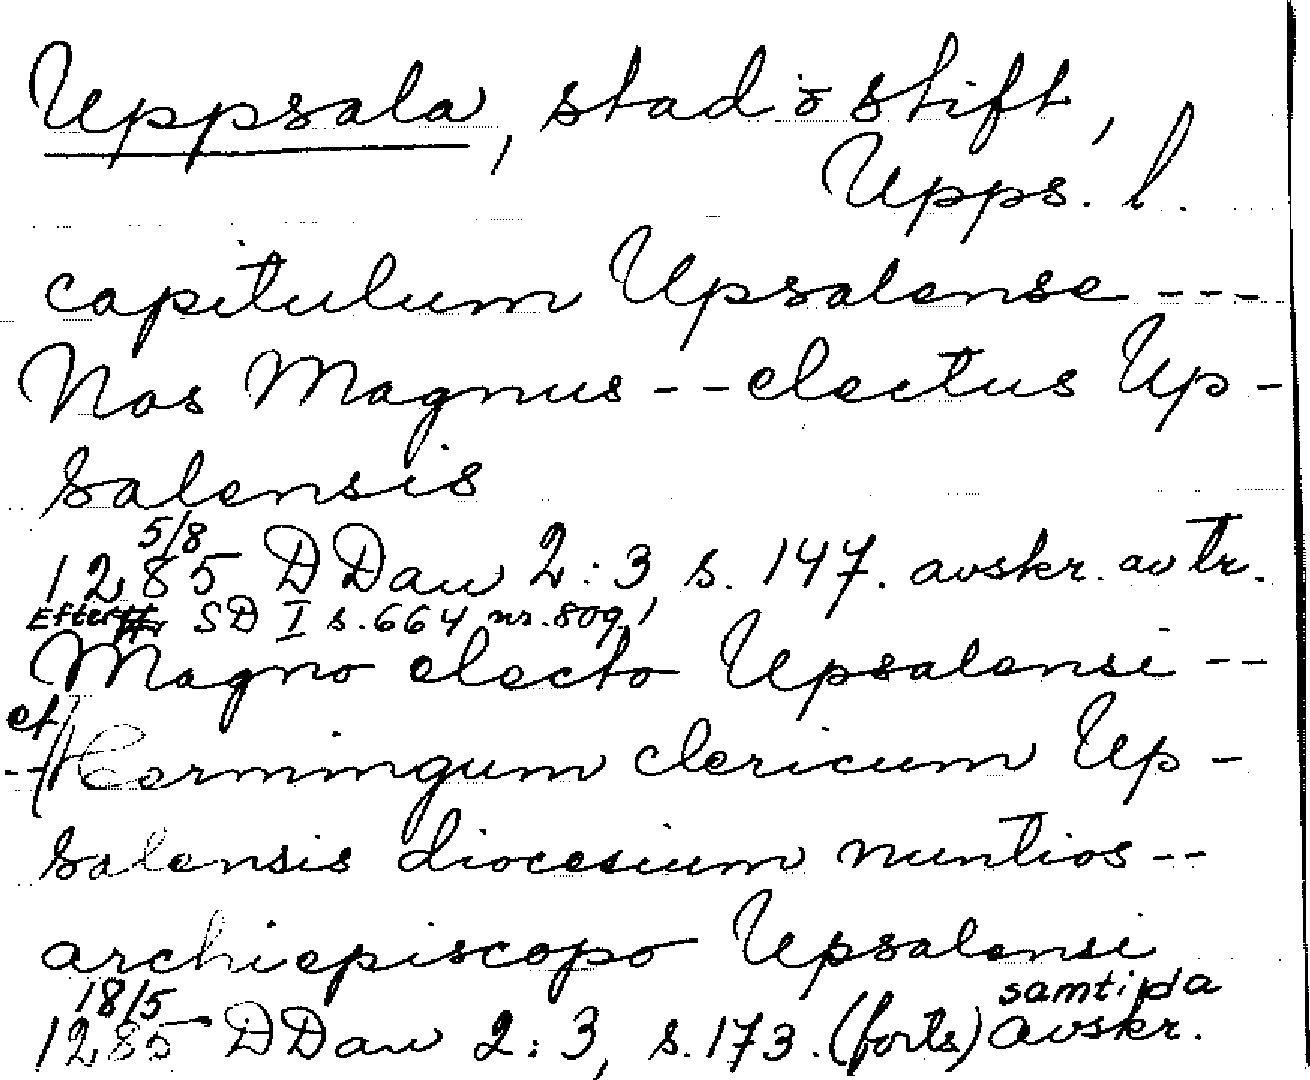 Uppsala, stad o stift,
Upps. l.
capitulum Upsalense ---
Nos Magnus -- electus Up-
salensis
5/8
1285 DDan 2:3, s. 147. avskr. av tr.
Efter SD I s. 664 nr. 809!
Magno electo Upsalensi --
et
-- Hermingum clericum Up-
salensis diocesium nuntios --
archiepiscopo Upsalensi
18/5 samtida
1285 DDan 2:3, s. 173. (forts) avskr.